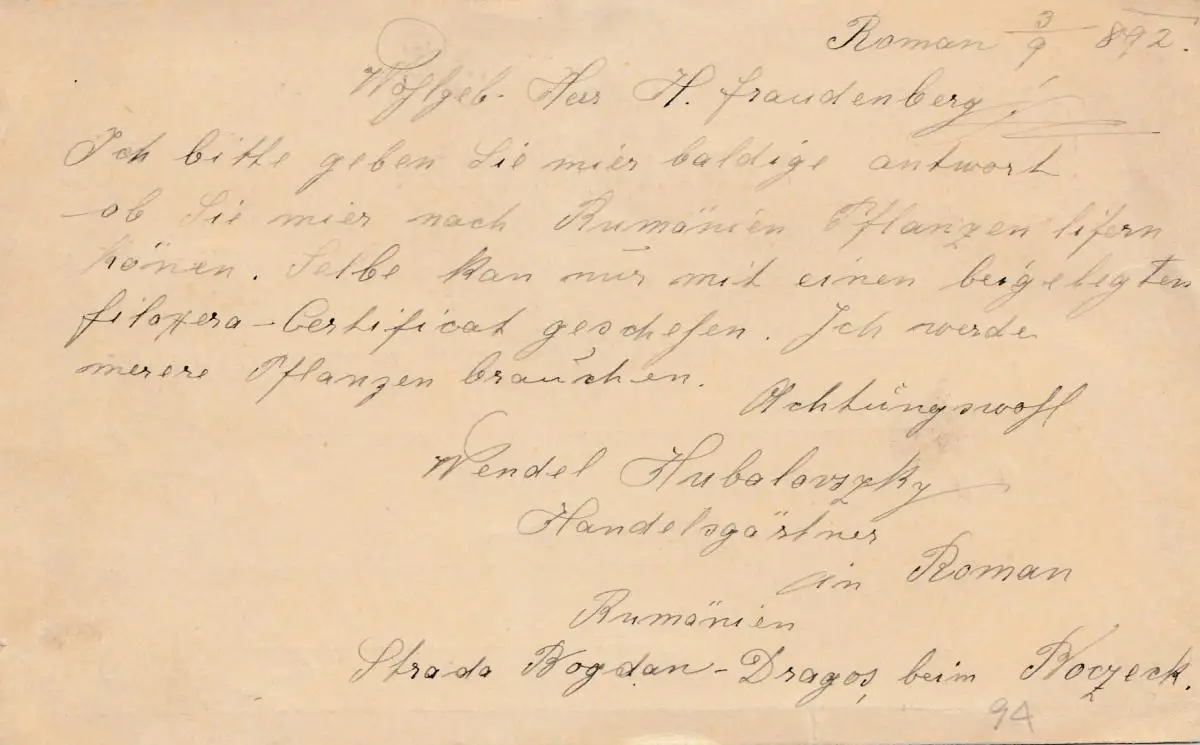 Roman 3/9 892.
Wohlgeb. Herr H. fraudenberg!
Ich bitte geben Sie mier baldige antwort
ob Sie mier nach Rumänien Pflanzen lifern
könen. Selbe kan nur mit einen beigelegten
filoxera-Certificat geschehen. Ich werde
merere Pflanzen brauchen.
Achtungswohl
Wendel Hubalovszky
Handelsgärtner
in Roman
Rumänien
Strada Bogdan-Dragoș, beim Boczeck.
94